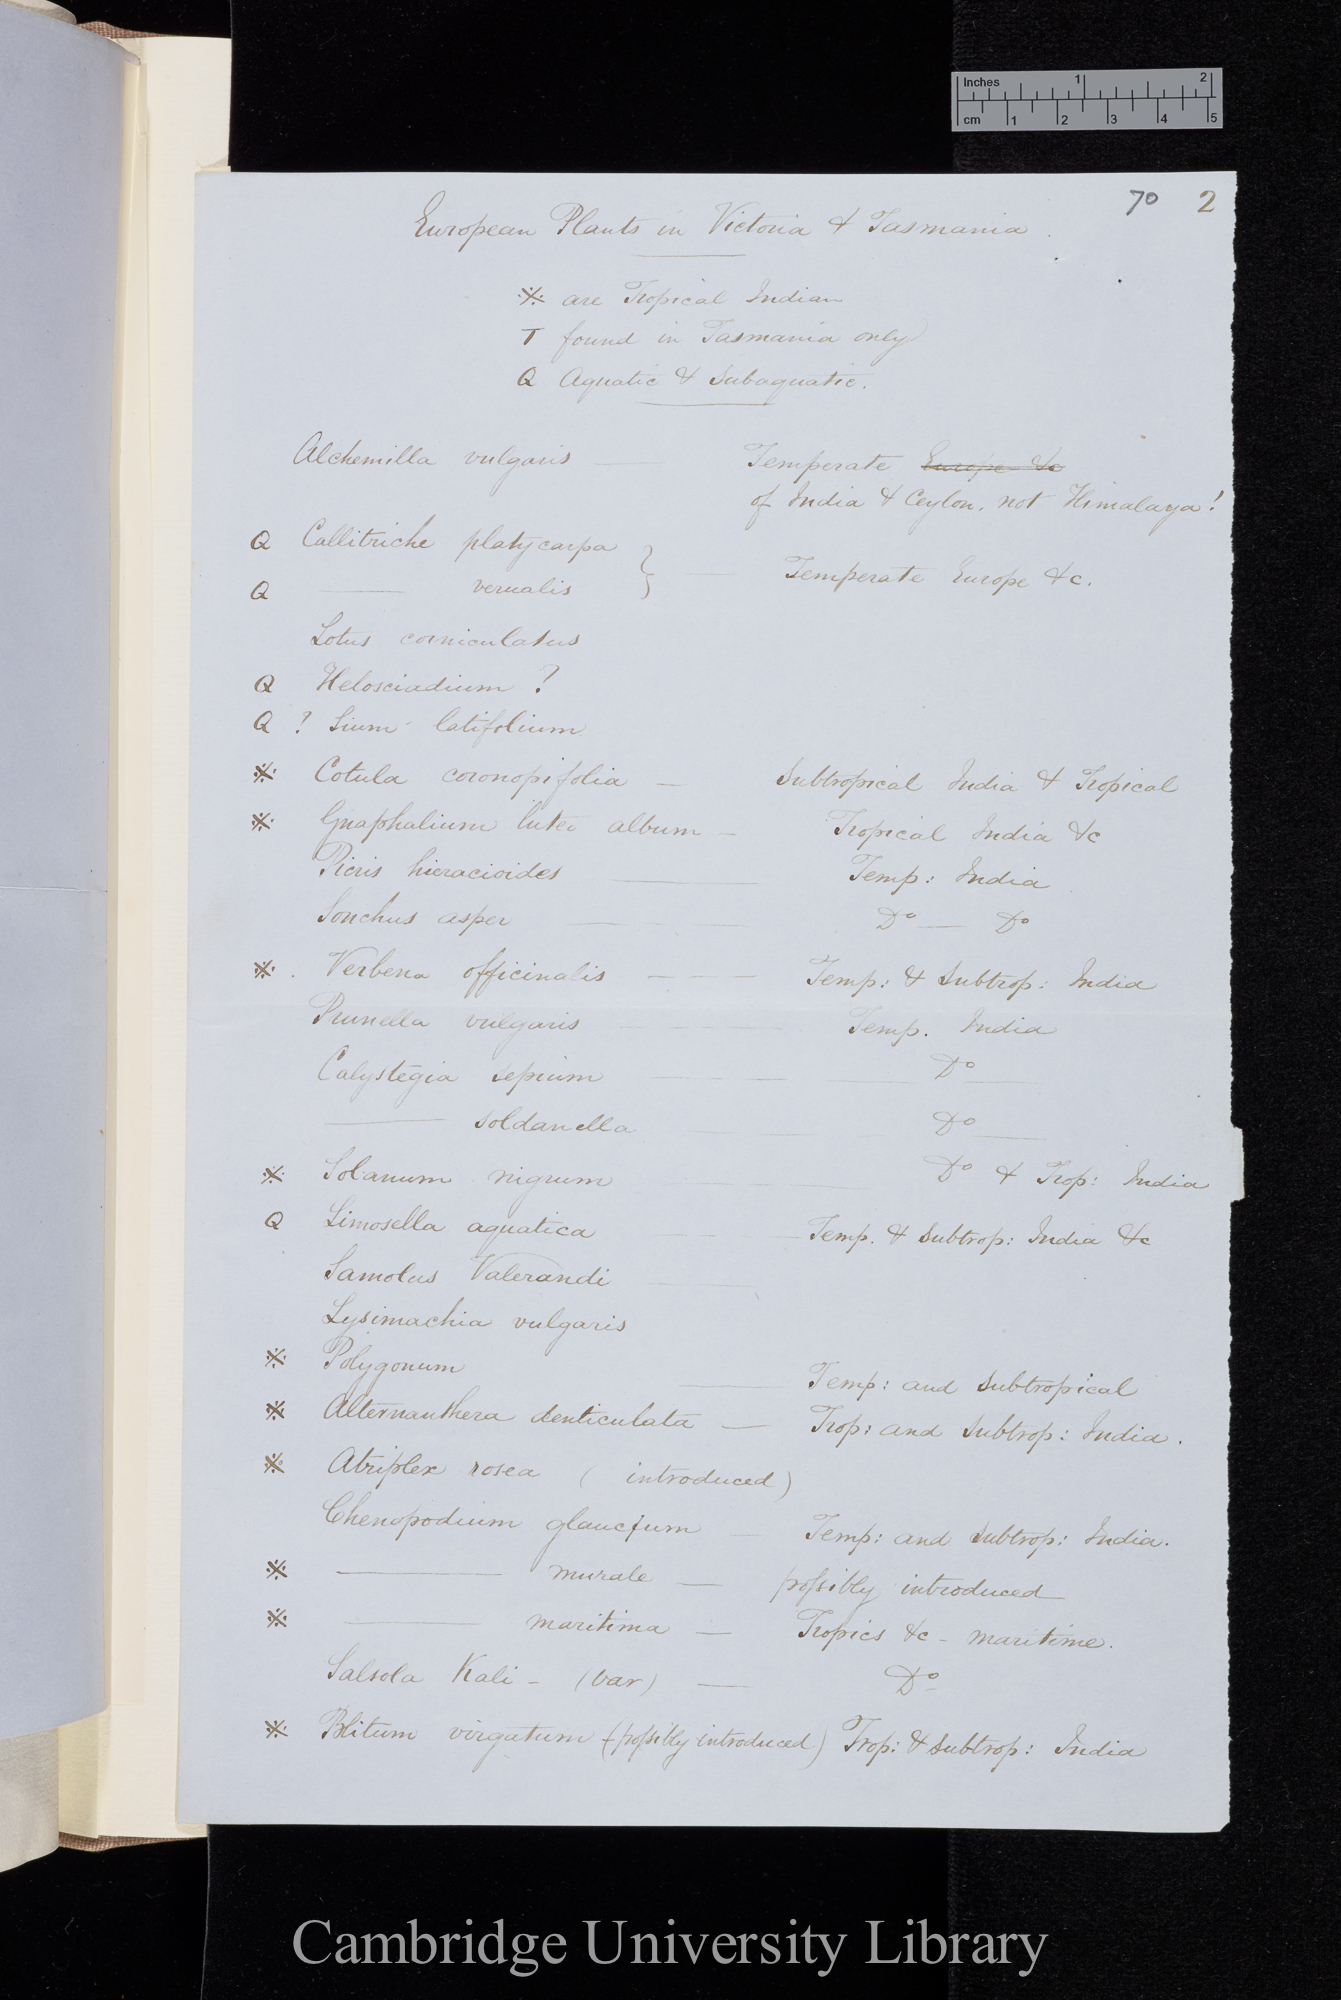 Inches 1 2
cm 1 2 3 4 5
70 2
European Plants in Victoria & Tasmania.
※ are Tropical Indian
T found in Tasmania only
Q Aquatic & Subaquatic.
Alchemilla vulgaris — Temperate Europe &c
of India & Ceylon, not Himalaya!
Q Callitriche platycarpa
Q —— vernalis } — Temperate Europe &c.
Lotus corniculatus
Q Helosciadium ?
Q ? Sium latifolium
※ Cotula coronopifolia — Subtropical India & Tropical
※ Gnaphalium luteo album — Tropical India &c
Picris hieracioides —— Temp: India
Sonchus asper — — — Do — Do
※ . Verbena officinalis — — — Temp: & Subtrop: India
Prunella vulgaris — — — Temp. India
Calystegia sepium — — — — Do —
—— soldanella — — — Do —
※ Solanum nigrum — — — Do & Trop: India
Q Limosella aquatica — — — Temp. & Subtrop: India &c
Samolus Valerandi — —
Lysimachia vulgaris
※ Polygonum —— Temp: and subtropical
※ Alternanthera denticulata — Trop: and Subtrop: India.
※ Atriplex rosea ( introduced)
Chenopodium glaucum — Temp: and subtrop: India.
※ —— murale — possibly introduced
※ —— maritima — Tropics &c - maritime.
Salsola Kali - (var) — Do
※ Blitum virgatum (possibly introduced) Trop: & subtrop: India
Cambridge University Library